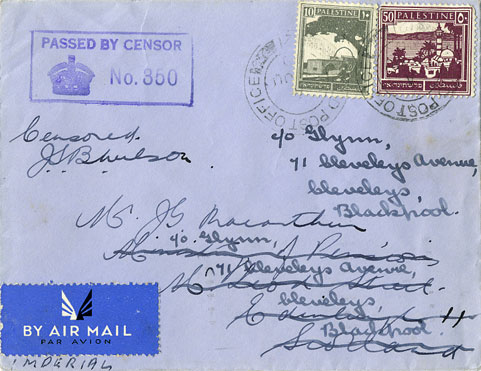 PASSED BY CENSOR
No. 350
10 PALESTINE
50 PALESTINE
POST OFFICE
Censored.
c/o Glynn,
71 Cleveleys Avenue,
Cleveleys,
Blackpool.
Mr. J G Macarthur
c/o Glynn,
Ministry of Pensions
71 Cleveleys Avenue,
Street.
Cleveleys,
Edinburgh 11
Blackpool.
Scotland
BY AIR MAIL
PAR AVION
IMPERIAL